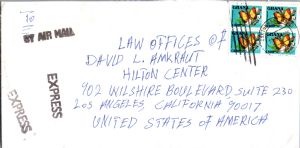 10
BY AIR MAIL
EXPRESS
EXPRESS
LAW OFFICES OF
DAVID L. AMKRAUT
HILTON CENTER
902 WILSHIRE BOULEVARD SUITE 230
LOS ANGELES, CALIFORNIA 90017
UNITED STATES OF AMERICA
GHANA
GHANA